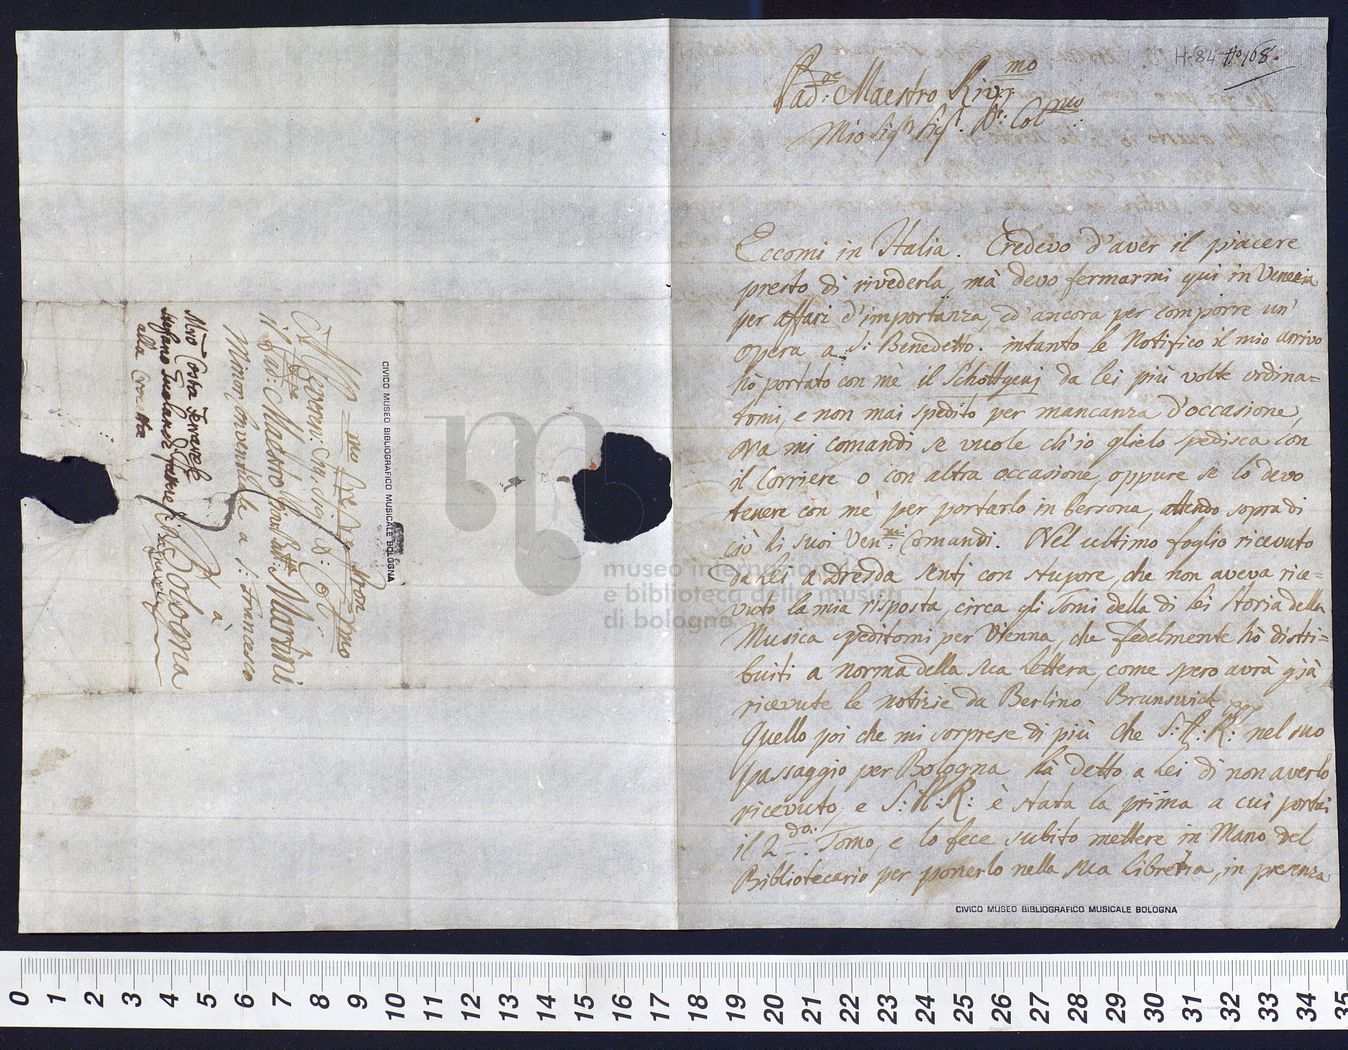 H. 84 No 168.
Pad:re Maestro Riv:mo
Mio Sigr Sigr Pe: Colmo
Eccomi in Italia. Credevo d'aver il piacere
presto di rivederla, mà devo fermarmi qui in Venezia
per affari d'importanza, ed ancora per comporre un'
opera a S: Benedetto. intanto le Notifico il mio arrivo
hò portato con mè il Schottgenj da lei più volte ordina=
tomi, e non mai spedito per mancanza d'occasione,
Ma mi comandi se vuole ch'io glielo spedisca con
il Corriere o con altra occasione, oppure sè lo devo
tenere con mè per portarlo in berrona, attendo sopra di
ciò li suoi Ven:mi Comandi. Nel ultimo foglio ricevuto
da lei a Dresda sentj con stupore, che non aveva rice=
vuto la mia risposta, circa gli Tomi della di lei Storia della
Musica speditomi per Vienna, che fedelmente hò distri=
buiti a norma della sua lettera, come spero avrà già
ricevute le notizie da Berlino Brunswick
Quello poi che mi sorprese di più che S: A: R: nel suo
passaggio per Bologna hà detto a lei di non averlo
ricevuto, e S: A: R: è stata la prima a cui portai
il 2:do: Tomo, e lo fece subito mettere in Mano del
Bibliotecario per ponerlo nella sua libreria, in presenza
CIVICO MUSEO BIBLIOGRAFICO MUSICALE BOLOGNA
il Pad:re Maestro Giov: Batta Martini
Minor Conventuale a S: Francesco
a
Bologna
CIVICO MUSEO BIBLIOGRAFICO MUSICALE BOLOGNA
museo internazionale
e biblioteca della musica
di bologna
0 1 2 3 4 5 6 7 8 9 10 11 12 13 14 15 16 17 18 19 20 21 22 23 24 25 26 27 28 29 30 31 32 33 34 35